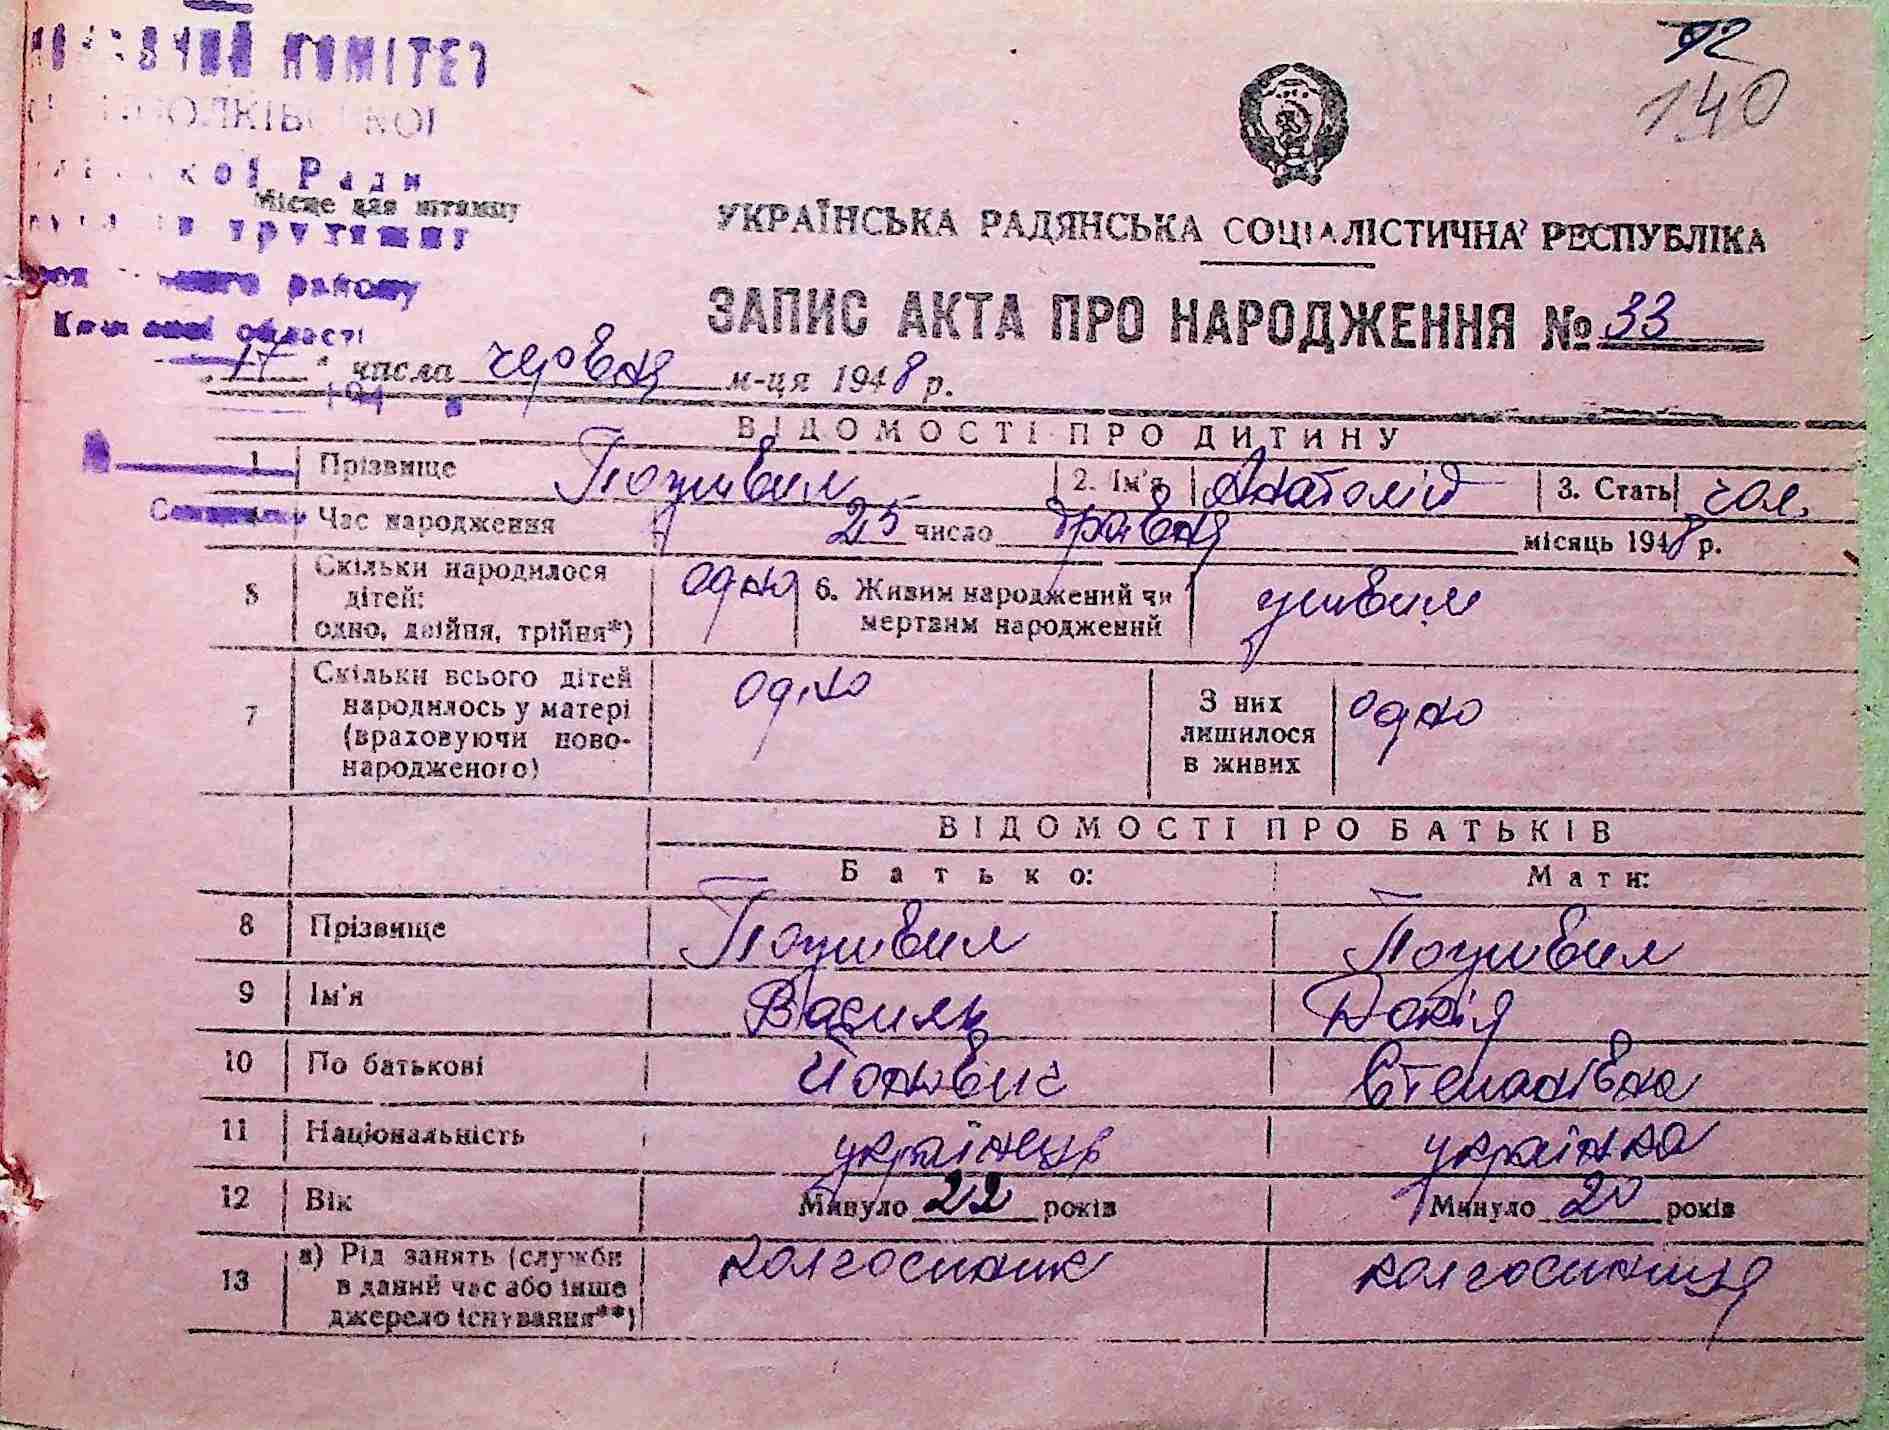 КОМІТЕТ
Ради
Місце для штампу
трутизни
району
області
72
140
УКРАЇНСЬКА РАДЯНСЬКА СОЦІАЛІСТИЧНА РЕСПУБЛІКА
ЗАПИС АКТА ПРО НАРОДЖЕННЯ № 33
17 числа червня м-ця 1948 р.
ВІДОМОСТІ ПРО ДИТИНУ
1 Прізвище Поживил 2. Ім'я Анатолій 3. Стать чол.
Час народження 25 число травня місяць 1948 р.
5 Скільки народилося дітей: одно, двійня, трійня*) одно 6. Живим народжений чи мертвим народжений живим
7 Скільки всього дітей народилось у матері (враховуючи ново-народженого) одно З них лишилося в живих одно
ВІДОМОСТІ ПРО БАТЬКІВ
Батько: Мати:
8 Прізвище Поживил Поживил
9 Ім'я Василь Докія
10 По батькові Йонович Степанівна
11 Національність українець українка
12 Вік Минуло 22 років Минуло 20 років
13 а) Рід занять (служби в даний час або інше джерело існування**) колгоспник колгоспниця